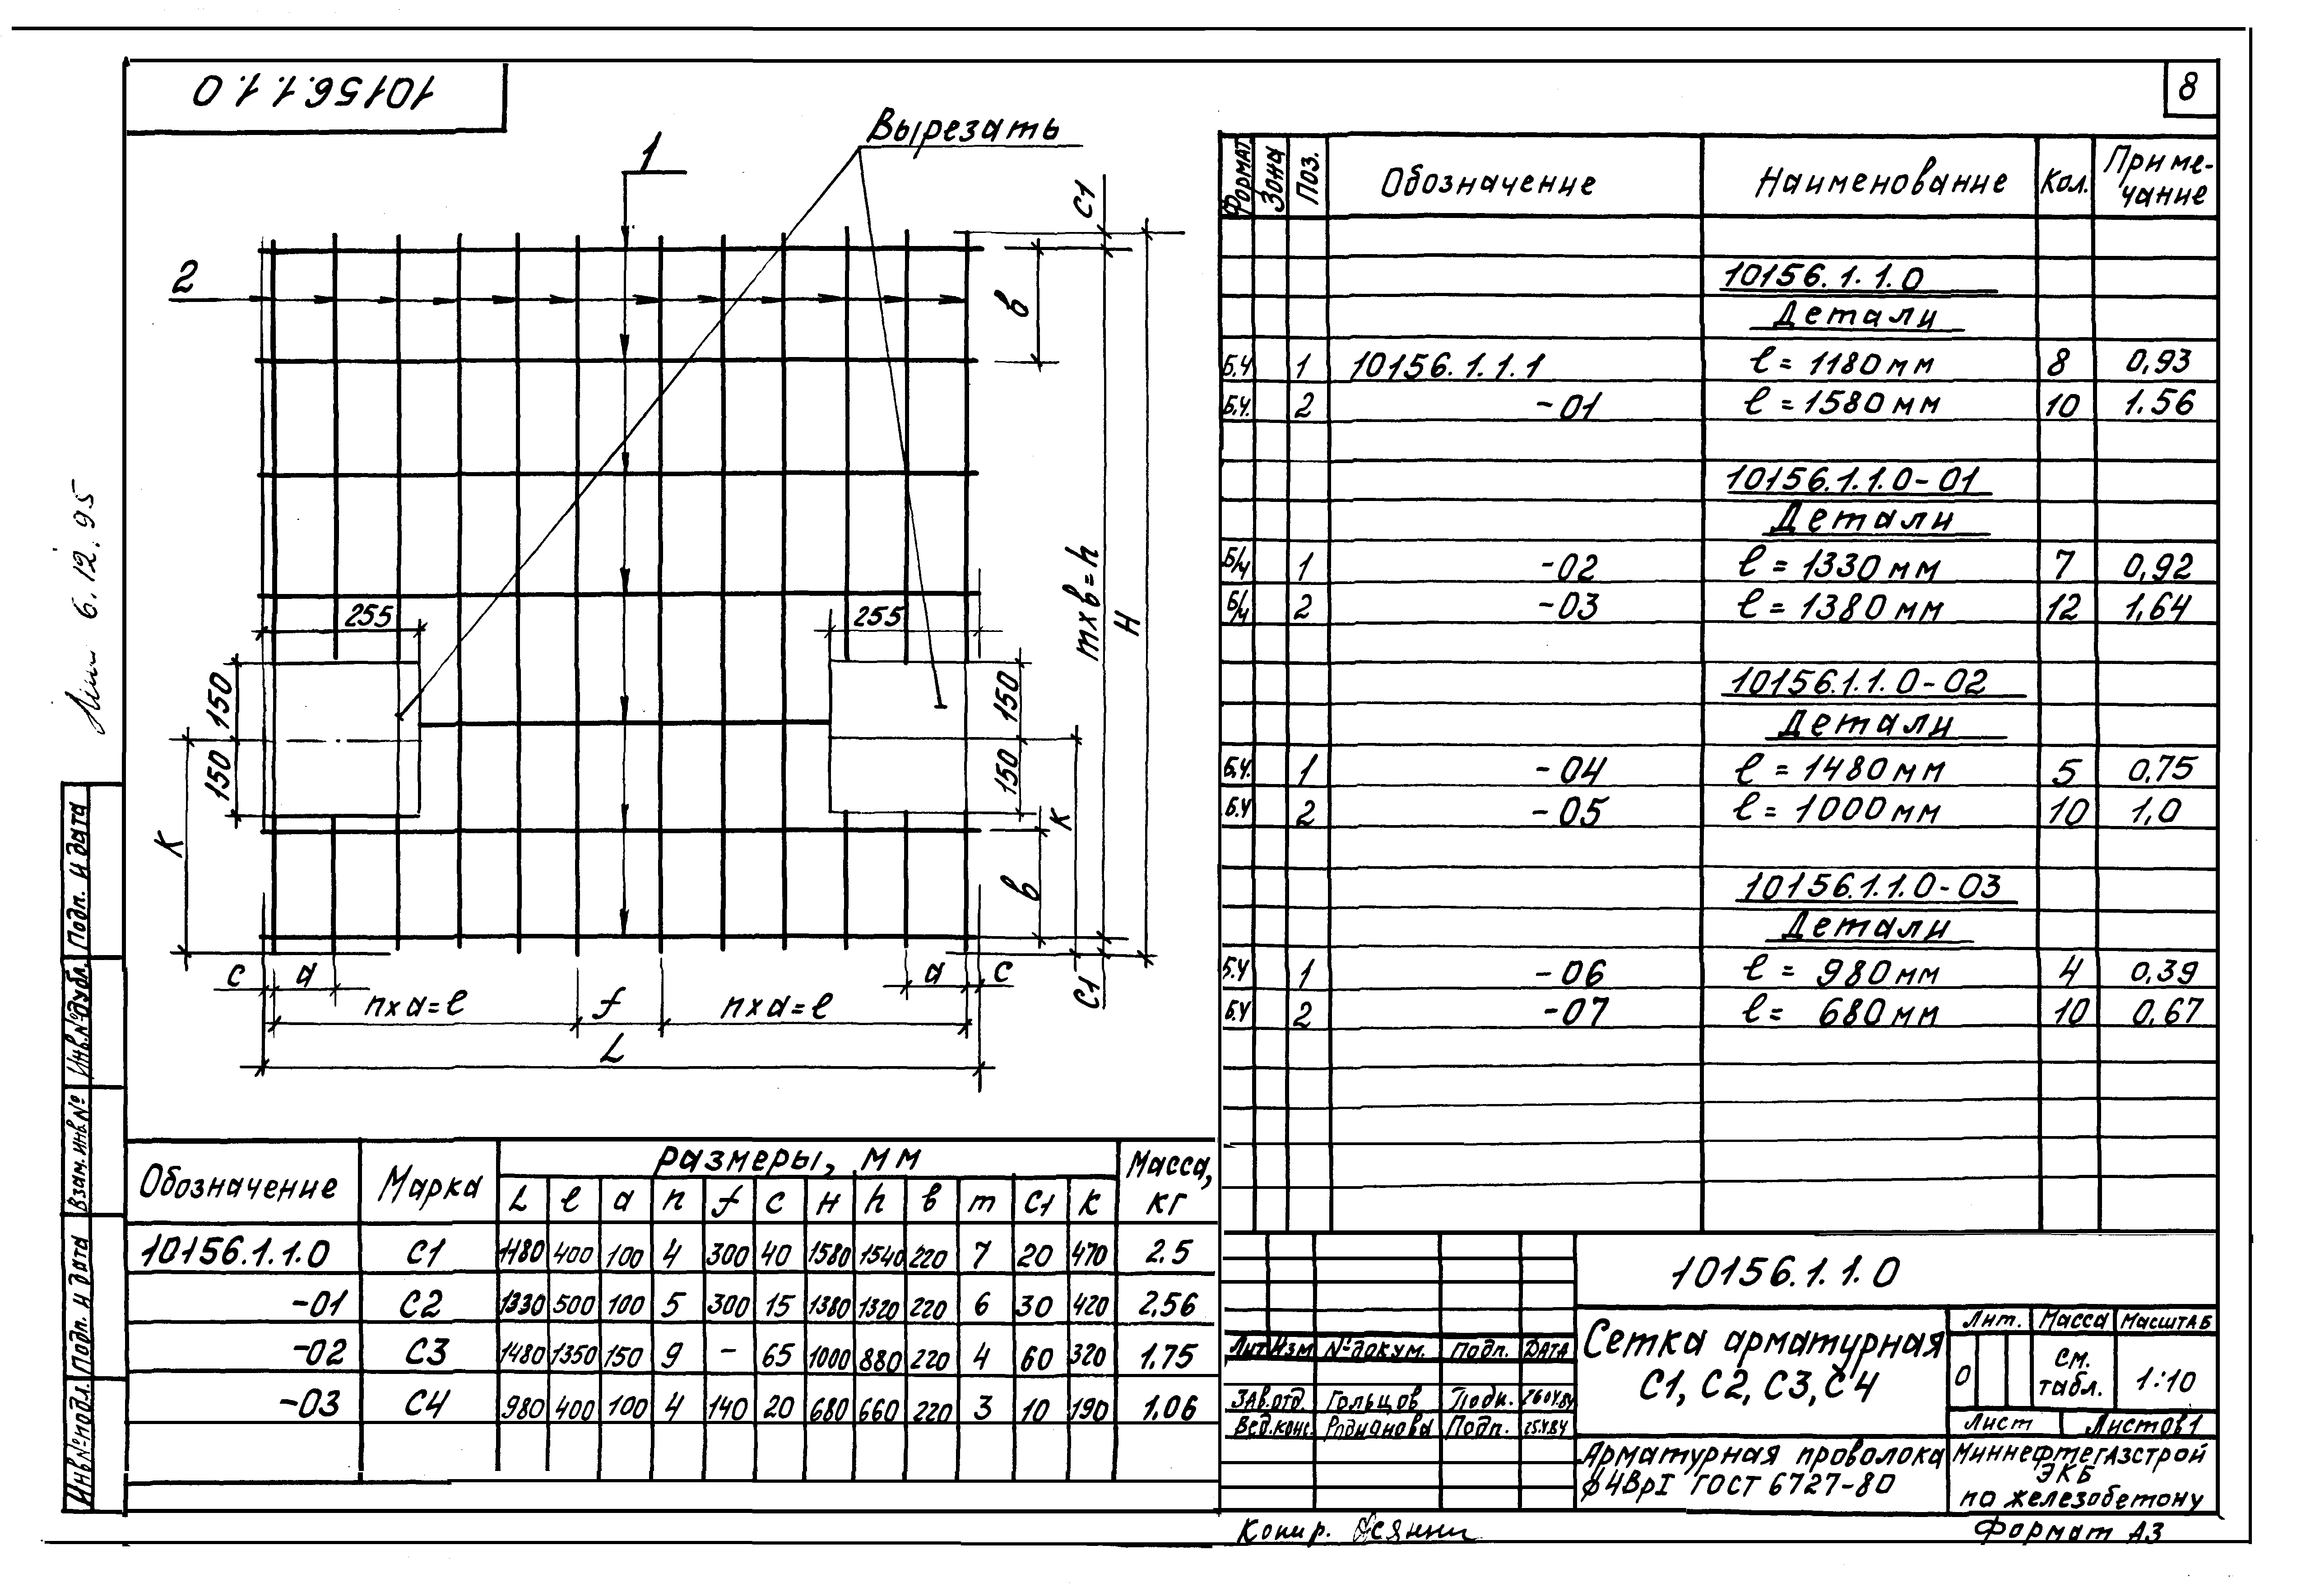 10156.1.1.0
8
Вырезать
1
2
С1
в
255
255
mxв=h
H
150
150
150
150
К
К
в
С
а
а
С
С1
nxa=ℓ
f
nxa=ℓ
L
6.12.95
Формат
Зона
Поз.
Обозначение
Наименование
Кол.
Приме-
чание
10156.1.1.0
Детали
Б.Ч 1 10156.1.1.1 ℓ=1180мм 8 0,93
Б.Ч. 2 -01 ℓ=1580мм 10 1.56
10156.1.1.0-01
Детали
Б/Ч 1 -02 ℓ=1330мм 7 0,92
Б/Ч 2 -03 ℓ=1380мм 12 1,64
10156.1.1.0-02
Детали
Б.Ч. 1 -04 ℓ=1480мм 5 0,75
Б.Ч 2 -05 ℓ=1000мм 10 1,0
10156.1.1.0-03
Детали
Б.Ч 1 -06 ℓ= 980мм 4 0,39
Б.Ч 2 -07 ℓ= 680мм 10 0,67
Обозначение Марка Размеры, мм Масса,
кг
L ℓ a n f c H h в m C1 K
10156.1.1.0 С1 1180 400 100 4 300 40 1580 1540 220 7 20 470 2.5
-01 С2 1330 500 100 5 300 15 1380 1320 220 6 30 420 2.56
-02 С3 1480 1350 150 9 - 65 1000 880 220 4 60 320 1.75
-03 С4 980 400 100 4 140 20 680 660 220 3 10 190 1.06
Подп. и дата
Инв.№дубл.
Взам.инв№
Подп. и дата
Инв№подл.
10156.1.1.0
Лит Изм №докум. Подп. Дата
Зав.отд. Гольцов Подп. 26.04.84
Вед.конс. Родионова Подп. 25.4.84
Сетка арматурная
С1, С2, С3, С4
Лит. Масса Масштаб
О см.
табл. 1:10
Лист Листов 1
Арматурная проволока
ф4ВрI ГОСТ 6727-80
Миннефтегазстрой
ЭКБ
по железобетону
Копир.
Формат А3